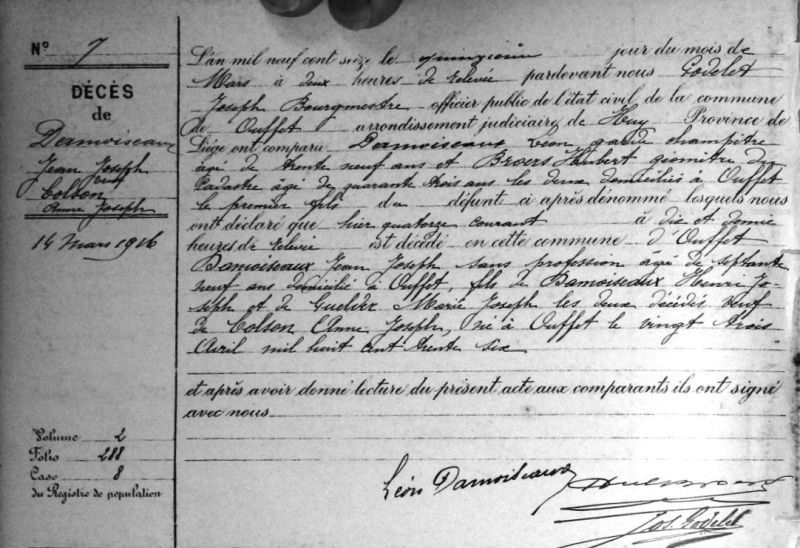 N° 7
DÉCÈS
de
Damoiseaux
Jean Joseph
veuf
Colson
Anne Joseph
14 Mars 1916
Volume 2
Folio 288
Case 8
du Registre de population
L'an mil neuf cent seize le quinzième jour du mois de
Mars à deux heures de relevée pardevant nous Godelet
Joseph Bourgmestre officier public de l'état civil de la commune
de Ouffet arrondissement judiciaire de Huy Province de
Liège ont comparu Damoiseaux Léon garde champêtre
âgé de trente neuf ans et Broers Hubert géomètre du
Cadastre âgé de quarante trois ans les deux domiciliés à Ouffet
le premier fils du défunt ci après dénommé lesquels nous
ont déclaré que hier quatorze courant à dix et demie
heures de relevée est décédé en cette commune d'Ouffet
Damoiseaux Jean Joseph sans profession âgé de septante
neuf ans domicilié à Ouffet, fils de Damoiseaux Henri Jo-
seph et de Marie Joseph les deux décédés veuf
de Colson Anne Joseph, né à Ouffet le vingt trois
Avril mil huit cent trente six
et après avoir donné lecture du présent acte aux comparants ils ont signé
avec nous
Léon Damoiseaux
Jos. Godelet